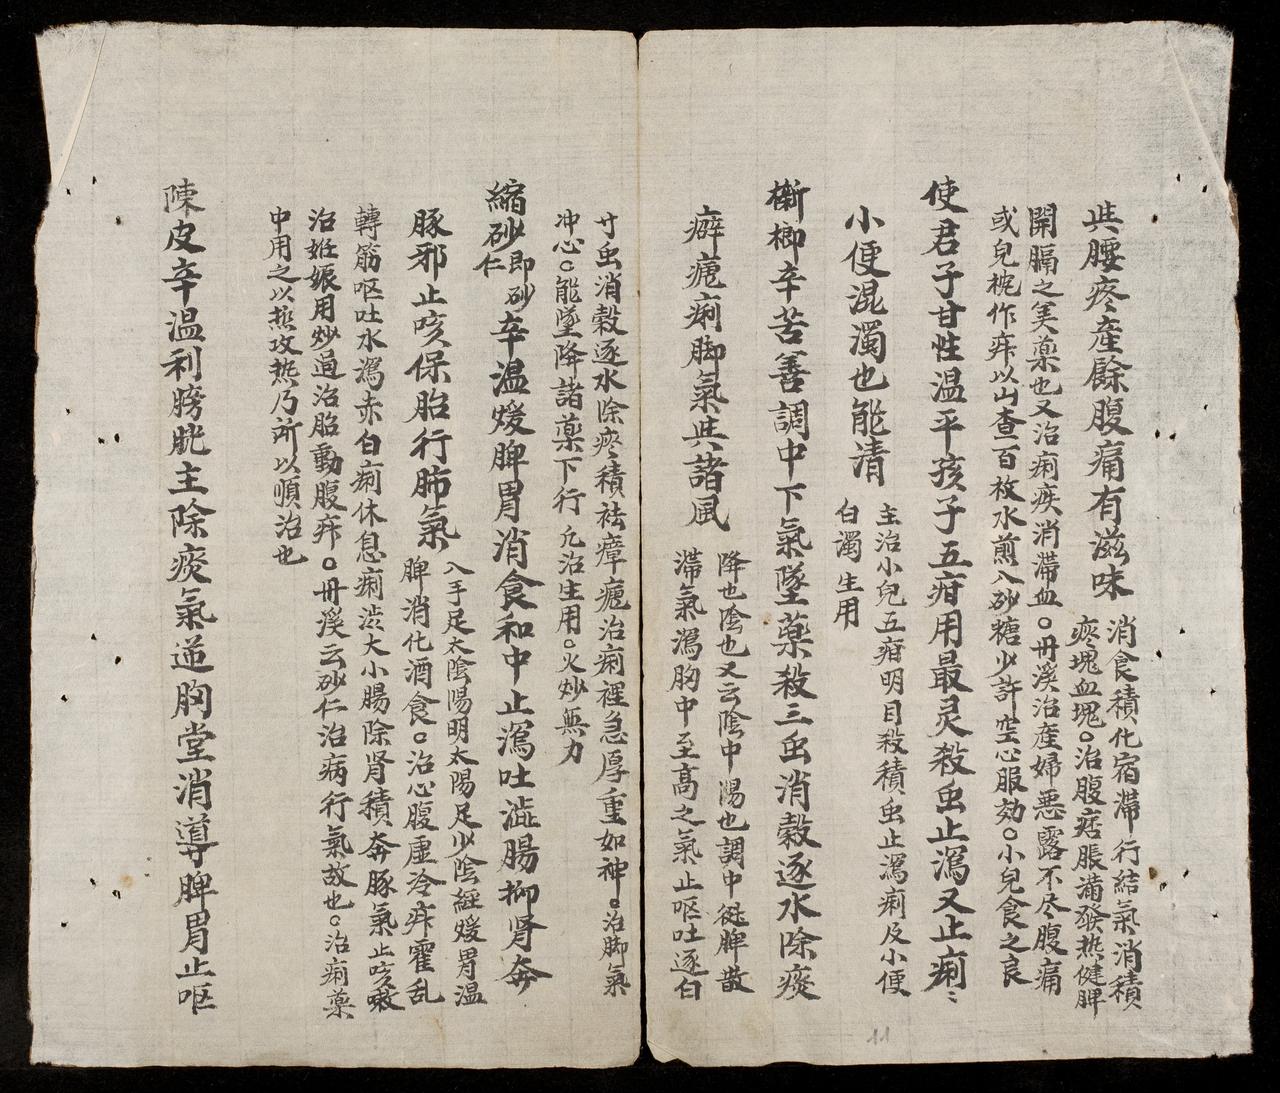 共腰疼産餘腹痛有滋味
消食積化宿滯行結氣消積
疼塊血塊○治腹痞脹滿發热健脾
開膈之美藥也又治痢疾消滯血○丹溪治産婦悪露不尽腹痛
或兒枕作疼以山查百枚水煎入砂糖少許空心服効○小兒食之良
使君子甘性温平孩子五疳用最灵殺虫止瀉又止痢〻
小便混濁也能清
主治小兒五疳明目殺積虫止瀉痢及小便
白濁 生用
檳榔辛苦善調中下氣墜藥殺三虫消穀逐水除痰
癖瘧痢脚氣共諸風
降也陰也又云陰中陽也調中健脾散
滯氣瀉胸中至高之氣止呕吐逐白
寸虫消穀逐水除痰積祛瘴瘧治痢裡急厚重如神○治脚氣
冲心○能墜降諸藥下行 凣治生用○火炒無力
縮砂即砂仁辛温煖脾胃消食和中止瀉吐澁腸抑肾奔
豚邪止咳保胎行肺氣
入手足太陰陽明太陽足少陰經煖胃温
脾消化酒食○治心腹虛冷疼霍乱
轉筋呕吐水瀉赤白痢休息痢澁大小腸除肾積奔豚氣止咳嗽
治姙娠用炒過治胎動腹疼○丹溪云砂仁治病行氣故也○治痢藥
中用之以热攻热乃所以順治也
陳皮辛温利膀胱主除痰氣逆胸堂消導脾胃止呕
11